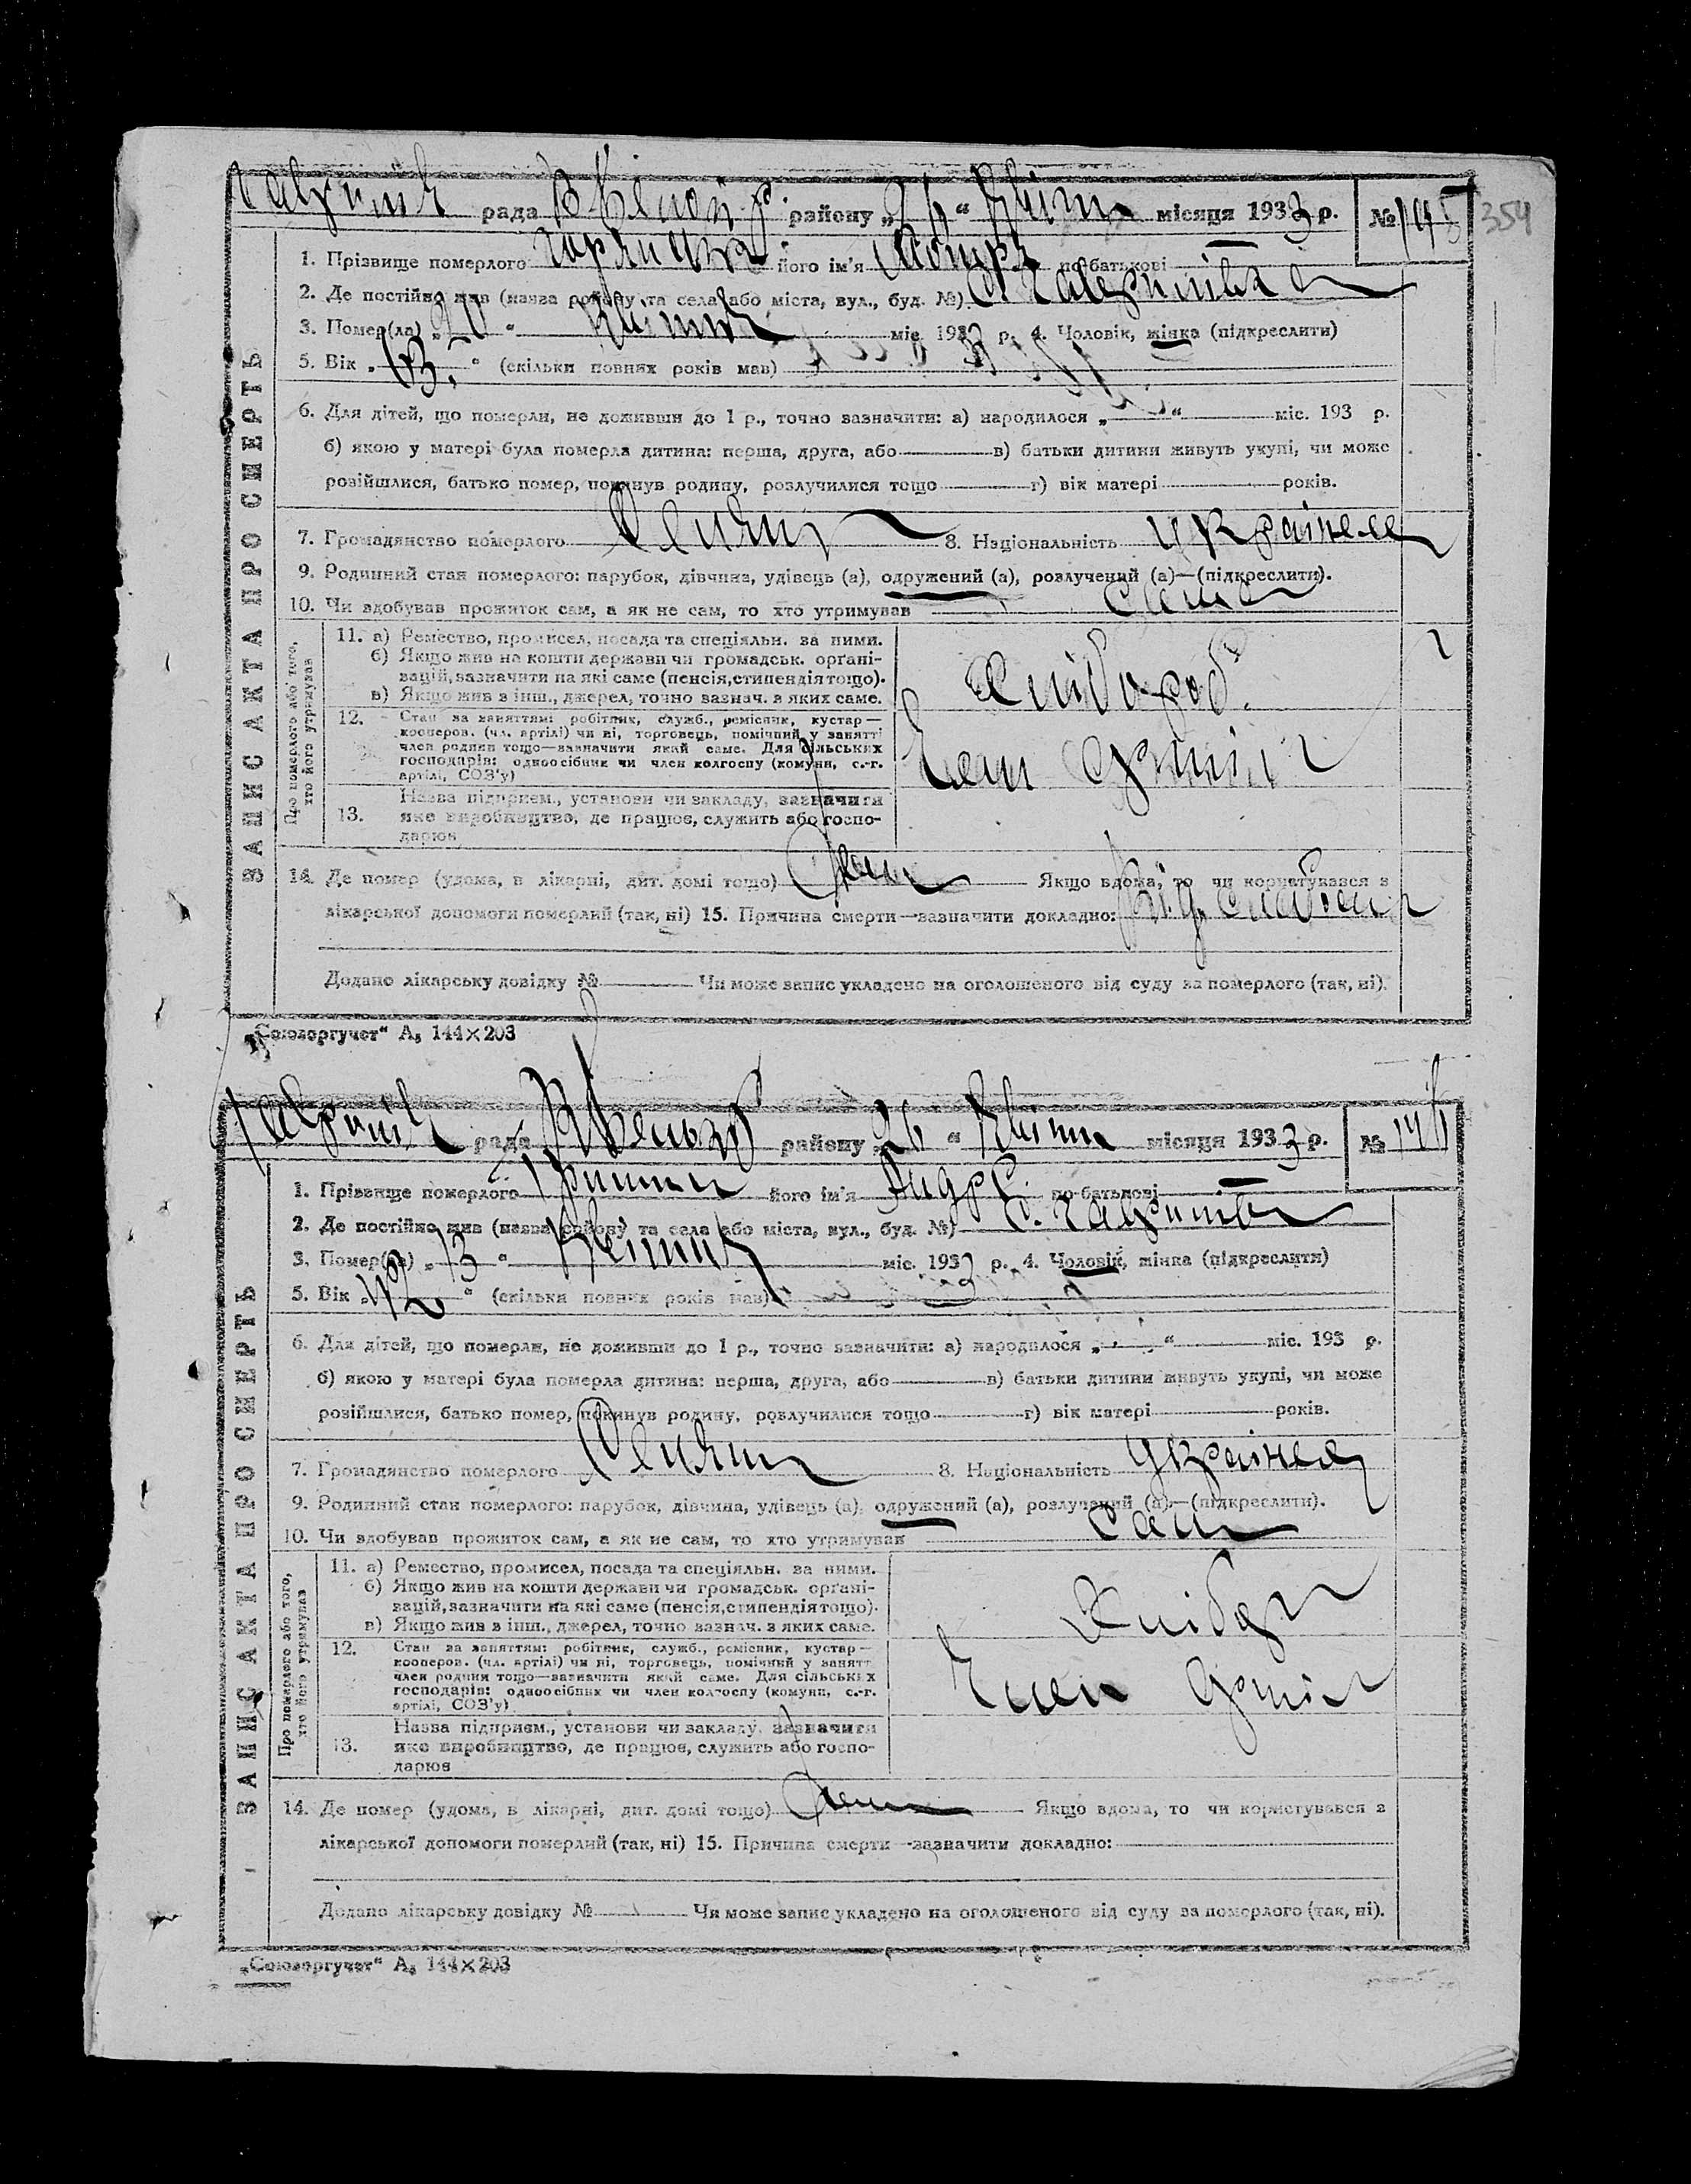 рада району „26“ місяця 1933 р. № 145 354
1. Прізвище померлого його ім'я по батькові
2. Де постійно жив (назва району та села або міста, вул., буд. №) с. Гаврилівка
3. Помер(ла) „20“ квітня міс. 1933 р. 4. Чоловік, жінка (підкреслити)
5. Вік „63“ (скільки повних років мав)
6. Для дітей, що померли, не доживши до 1 р., точно зазначити: а) народилося „ “ міс. 193 р.
б) якою у матері була померла дитина: перша, друга, або в) батьки дитини живуть укупі, чи може
розійшлися, батько помер, покинув родину, розлучилися тощо г) вік матері років.
7. Громадянство померлого 8. Національність українец
9. Родинний стан померлого: парубок, дівчина, удівець (а), одружений (а), розлучений (а)—(підкреслити).
10. Чи здобував прожиток сам, а як не сам, то хто утримував сама
ЗАПИС АКТА ПРО СМЕРТЬ
Про померлого або того,
хто його утримував
11. а) Ремество, промисел, посада та спеціяльн. за ними.
б) Якщо жив на кошти держави чи громадськ. орґані-
зацій, зазначити на які саме (пенсія, стипендія тощо).
в) Якщо жив з інш., джерел, точно зазнач. з яких саме.
Хлібороб.
12. Стан за заняттям: робітник, служб., ремісник, кустар—
кооперов. (чл. артілі) чи ні, торговець, помічний у занятті
член родини тощо—зазначити який саме. Для сільських
господарів: одноосібник чи член колгоспу (комуни, с.-г.
артілі, СОЗ'у)
Член артілі
13. Назва підприєм., установи чи закладу, зазначити
яке виробництво, де працює, служить або госпо-
дарює
14. Де помер (удома, в лікарні, дит. домі тощо) Якщо вдома, то чи користувався з
лікарської допомоги померлий (так, ні) 15. Причина смерти—зазначити докладно: Від
Додано лікарську довідку № Чи може запис укладено на оголошеного від суду за померлого (так, ні).
„Союзоргучет“ А₅ 144×203
рада району „26“ місяця 1933 р. № 146
1. Прізвище померлого його ім'я Андрій по батькові
2. Де постійно жив (назва району та села або міста, вул., буд. №) с. Гаврилівка
3. Помер(ла) „13“ квітня міс. 1933 р. 4. Чоловік, жінка (підкреслити)
5. Вік „42“ (скільки повних років мав)
6. Для дітей, що померли, не доживши до 1 р., точно зазначити: а) народилося „ “ міс. 193 р.
б) якою у матері була померла дитина: перша, друга, або в) батьки дитини живуть укупі, чи може
розійшлися, батько помер, покинув родину, розлучилися тощо г) вік матері років.
7. Громадянство померлого 8. Національність українец
9. Родинний стан померлого: парубок, дівчина, удівець (а), одружений (а), розлучений (а)—(підкреслити).
10. Чи здобував прожиток сам, а як не сам, то хто утримував сам
ЗАПИС АКТА ПРО СМЕРТЬ
Про померлого або того,
хто його утримував
11. а) Ремество, промисел, посада та спеціяльн. за ними.
б) Якщо жив на кошти держави чи громадськ. орґані-
зацій, зазначити на які саме (пенсія, стипендія тощо).
в) Якщо жив з інш., джерел, точно зазнач. з яких саме.
12. Стан за заняттям: робітник, служб., ремісник, кустар—
кооперов. (чл. артілі) чи ні, торговець, помічний у занятті
член родини тощо—зазначити який саме. Для сільських
господарів: одноосібник чи член колгоспу (комуни, с.-г.
артілі, СОЗ'у)
Член артілі
13. Назва підприєм., установи чи закладу, зазначити
яке виробництво, де працює, служить або госпо-
дарює
14. Де помер (удома, в лікарні, дит. домі тощо) Якщо вдома, то чи користувався з
лікарської допомоги померлий (так, ні) 15. Причина смерти—зазначити докладно:
Додано лікарську довідку № Чи може запис укладено на оголошеного від суду за померлого (так, ні).
„Союзоргучет“ А₅ 144×203